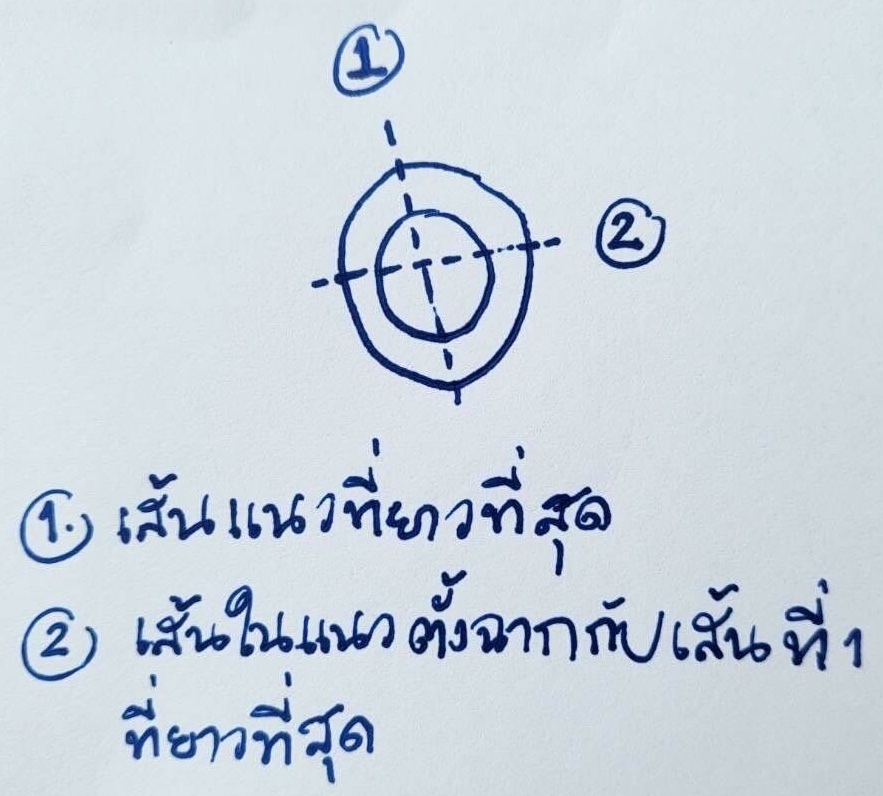 1
2
1. เส้นแนวที่ยาวที่สุด
2 เส้นในแนวตั้งฉากกับเส้นที่ 1
ที่ยาวที่สุด